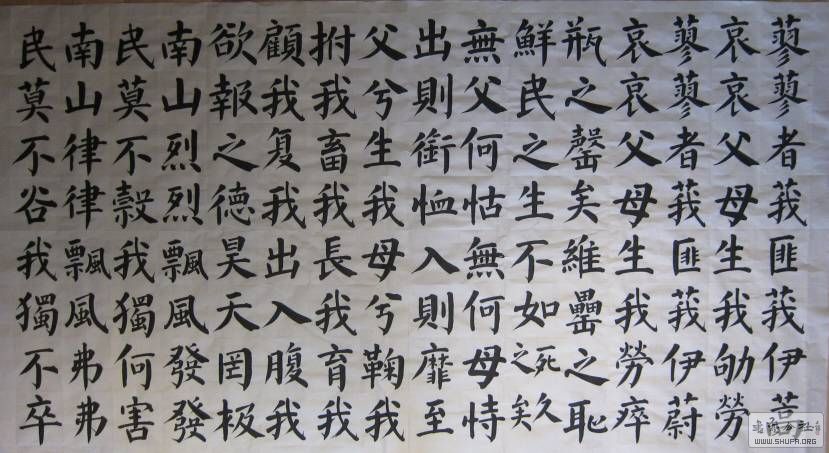 蓼蓼者莪匪莪伊蒿
哀哀父母生我劬勞
蓼蓼者莪匪莪伊蔚
哀哀父母生我勞瘁
瓶之罄矣維罍之耻
鮮民之生不如死之久矣
無父何怙無何母恃
出則銜恤入則靡至
父兮生我母兮鞠我
拊我畜我長我育我
顧我复我出入腹我
欲報之德昊天罔极
南山烈烈飄風發發
民莫不穀我獨何害
南山律律飄風弗弗
民莫不谷我獨不卒
WWW.SHUFA.ORG